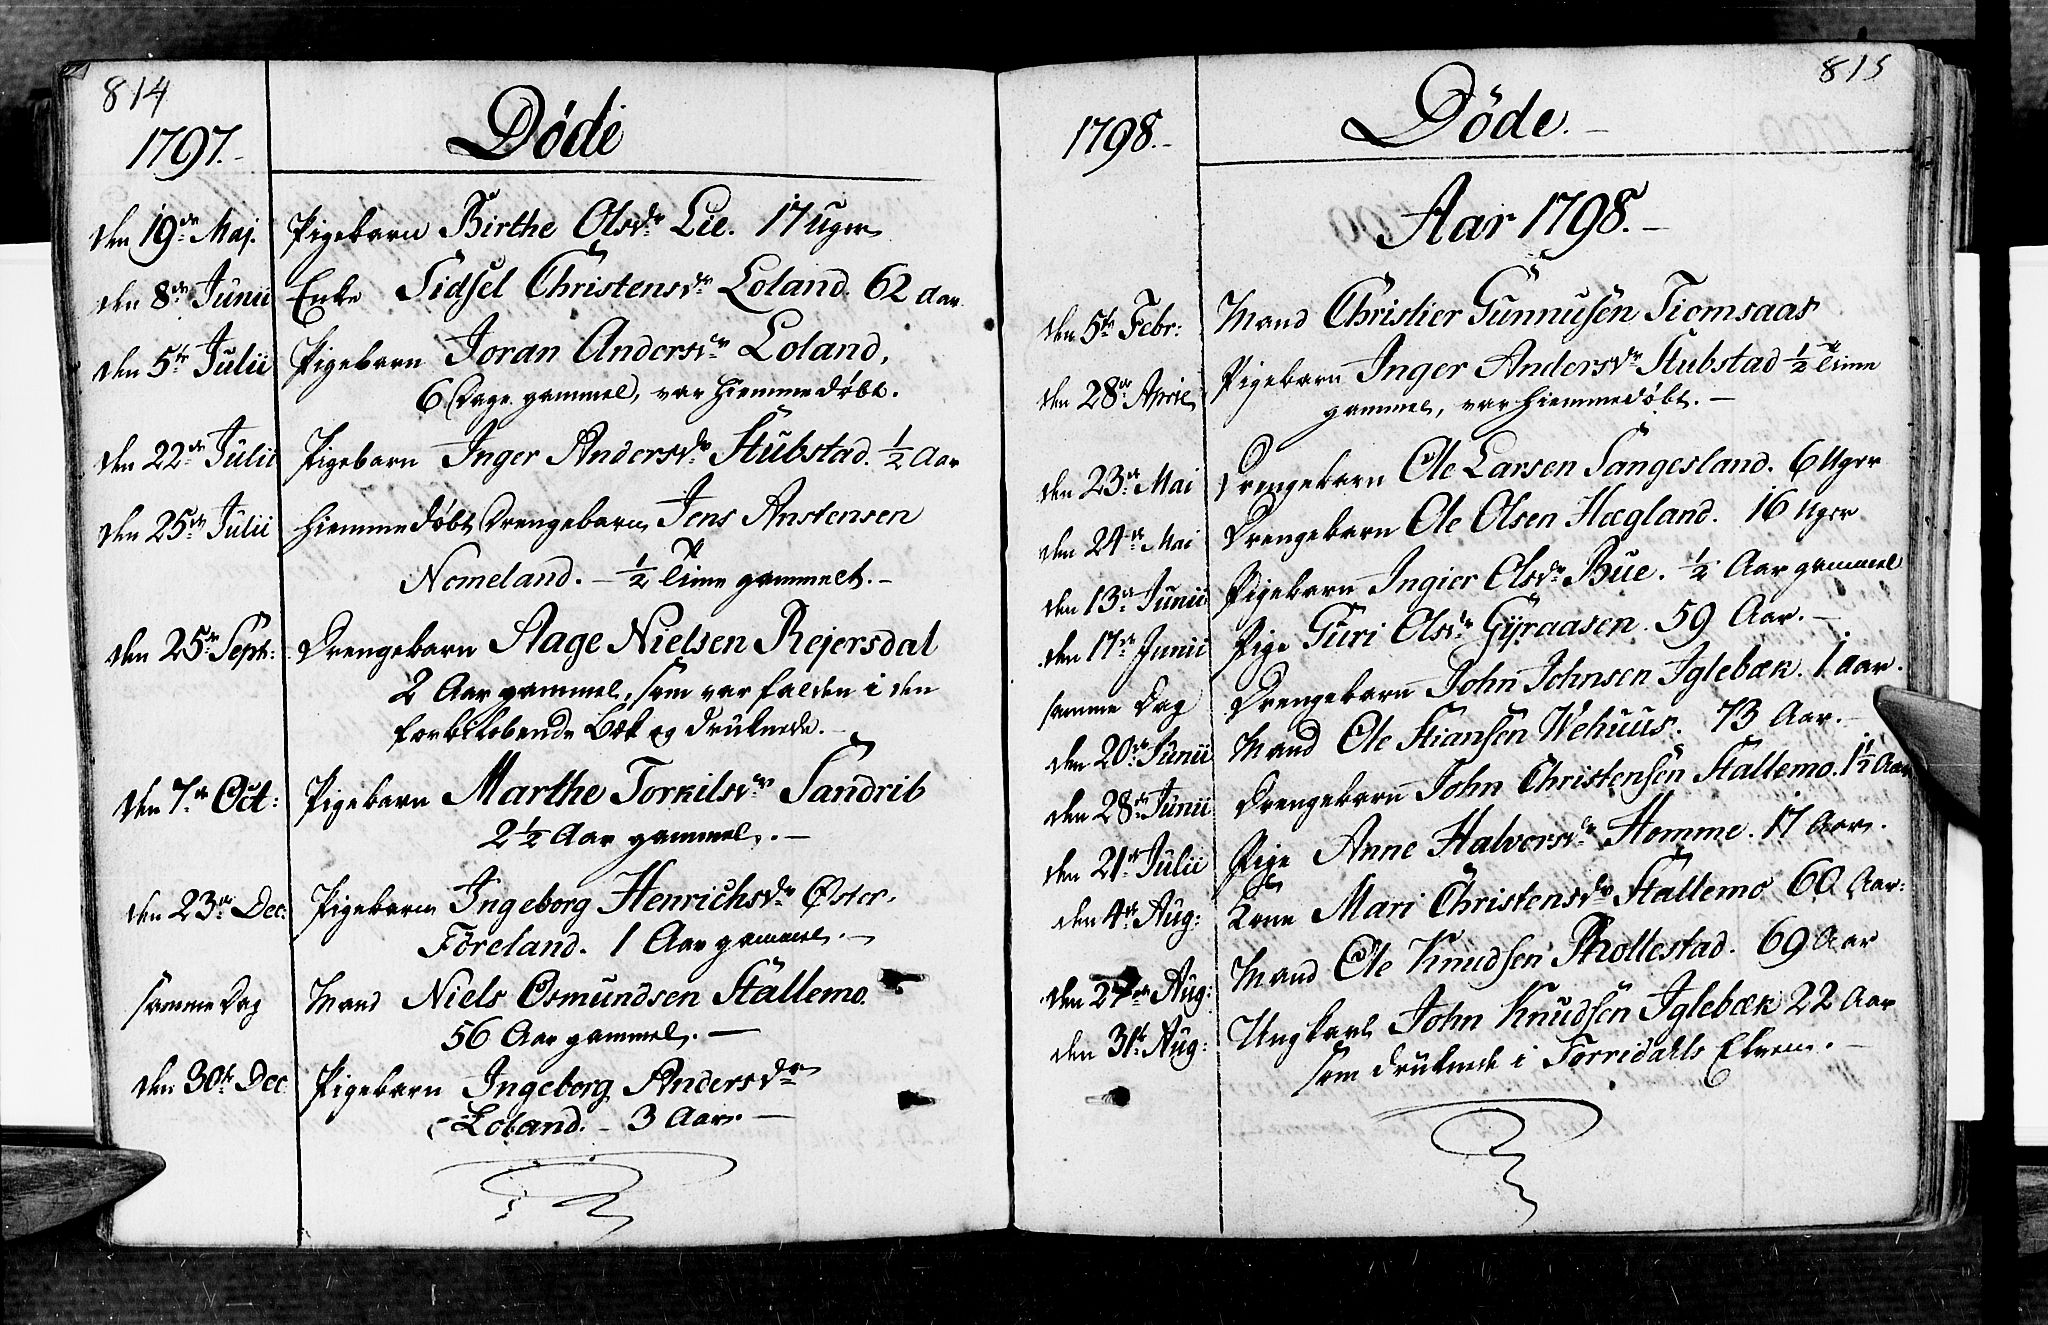 814
1797.
Döde
den 19de Maj. Pigebarn Birthe Olsdr Lie. 17 Uger
den 8de Junii Enke Sidsel Christensdr Loland. 62 Aar
den 5te Julii Pigebarn Joran Andersdr Loland,
6 Dage gammel, var hiemmedöbt.
den 22de Julii Pigebarn Inger Andersdr Stubstad. ½ Aar
den 25de Julii hiemmedöbt Drengebarn Jens Anstensen
Nomeland. – ½ Time gammelt. –
den 25de Sept: Drengebarn Aage Nielsen Rejersdal
2 Aar gammel, som var falden i den
forbilobende Bæk og druknede. –
den 7de Oct: Pigebarn Marthe Torkilsdr Sandrib
2½ Aar gammel. –
den 23de Dec: Pigebarn Ingeborg Henrichsdr Øster-
Föreland. 1 Aar gammel. –
samme Dag Mand Niels Osmundsen Stallemo.
56 Aar gammel. –
den 30te Dec Pigebarn Ingeborg Andersdr
Loland. – 3 Aar. –
815
1798. –
Döde. –
Aar 1798. –
den 5te Febr: Mand Christier Gunnusen Tiomsaas
den 28de April Pigebarn Inger Andersdr Stubstad ½ Time
gammel, var hiemmedöbt. –
den 23de Mai Drengebarn Ole Larsen Sangesland. 6 Uger
den 24de Mai Drengebarn Ole Olsen Hægland. 16 Uger
den 13de Junii Pigebarn Ingier Olsdr Bue. ½ Aar gammel
den 17de Junii Pige Guri Olsdr Gyraasen. 59 Aar. –
samme Dag Drengebarn John Johnsen Iglebæk. 1 Aar.
den 20de Junii Mand Ole Stiansen Wehuus. 73 Aar. –
den 28de Junii Drengebarn John Christensen Stallemo. 1½ Aar
den 21de Julii Pige Anne Halvorsdr Homme. 17 Aar.
den 4de Aug: Kone Mari Christensdr Stallemo 60 Aar:
den 27de Aug: Mand Ole Knudsen Rollestad. 69 Aar
den 31te Aug: Ungkarl John Knudsen Iglebæk 22 Aar
som druknede i Torridahls Elven. –